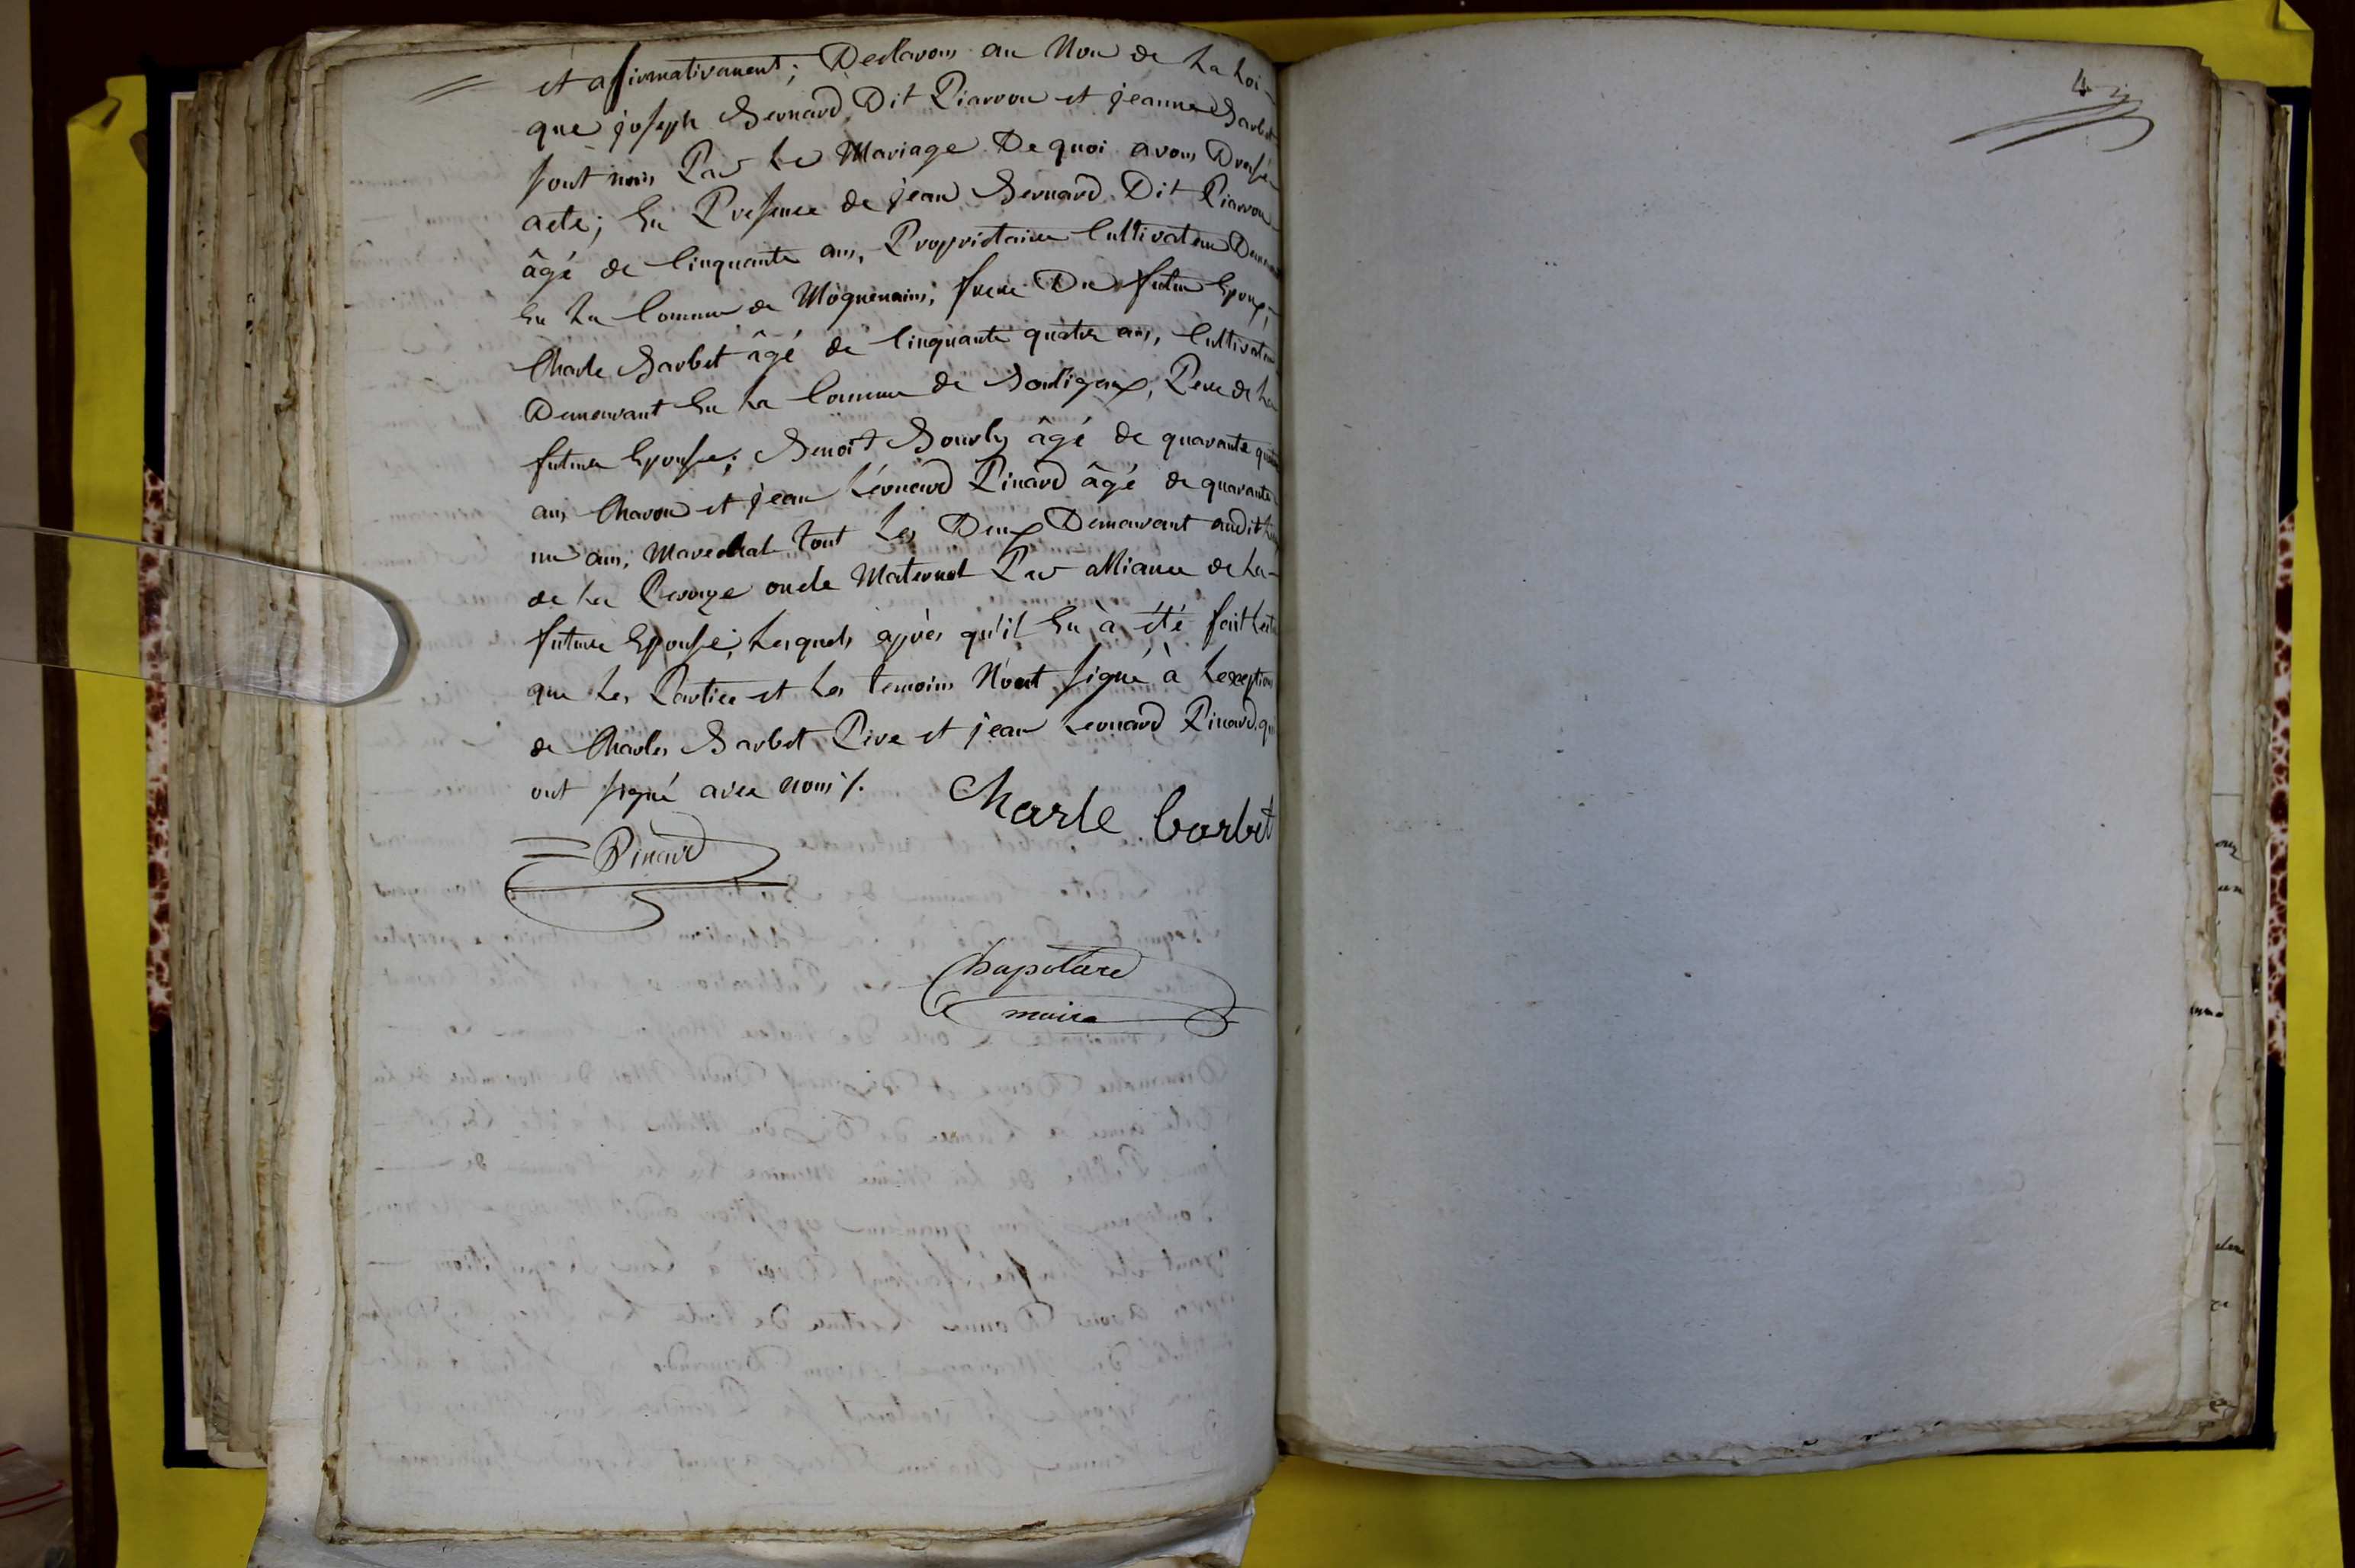 et afirmativement; Declarons au Nom de La Loi
que joseph Bernard Dit Piarrou et jeanne Barbet
sont unis Par Le Mariage De quoi avons Dressé
acte; En Presence de jean Bernard Dit Piarrou
âgé de Cinquante ans, Proprietaire Cultivateur Demeurant
En La Commune de frere Du futur Epoux,
Charle Barbet âgé de Cinquante quatre ans, Cultivateur
Demeurant En La Commune de Pere de La
future Epouse; Benoit Bourly âgé de quarante quatre
ans Charon et jean Léonard Pinard âgé de quarante
un ans, Marechal tout Les Deux Demeurant audit Lieu
de La oncle Maternel Par alliance de La
future Epouse, Lesquels après qu'il En à été fait Lecture
que Les Parties et Les temoins N'ont signé à Lexeption
de Charles Barbet Pere et jean Leonard Pinard qui
ont signé avec nous ./.
Charle barbet
Pinard
Chapotare
maire
4